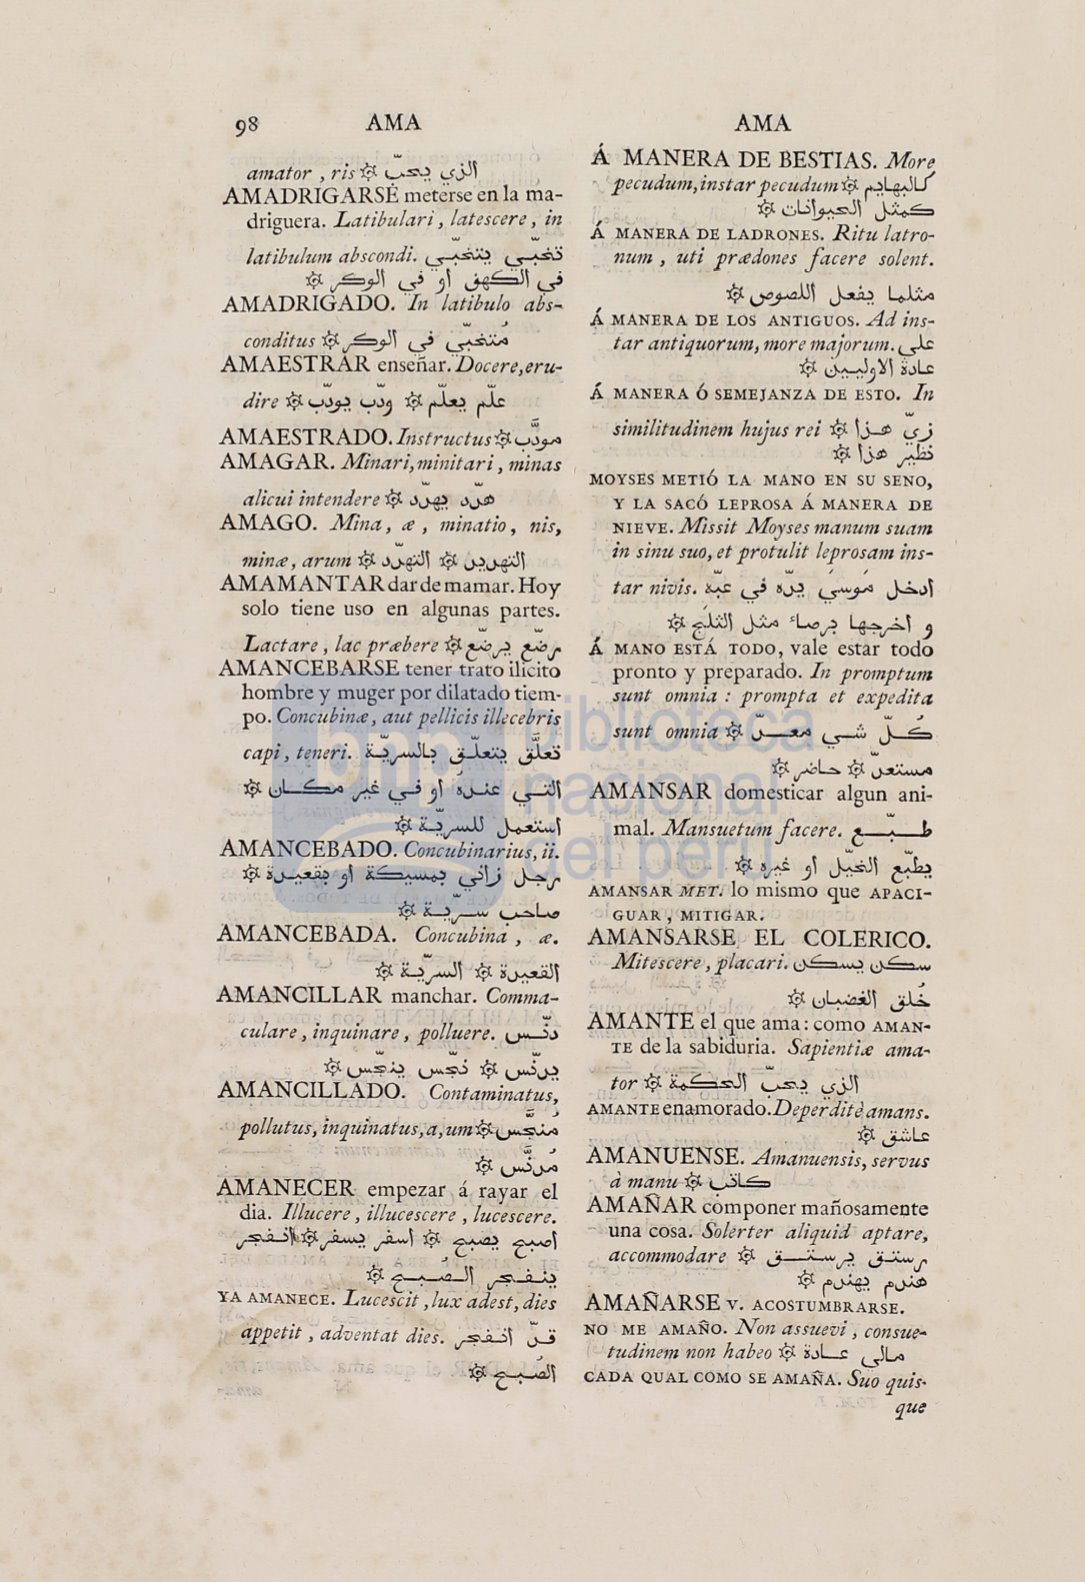 98 AMA
amator , ris ۞ الزي يحبّ
AMADRIGARSE meterse en la ma-
driguera. Latibulari, latescere, in
latibulum abscondi. تخبّي يتخبّي
في الكهف او في الوكر ۞
AMADRIGADO. In latibulo abs-
conditus ۞ مُتخبّي في الوكر
AMAESTRAR enseñar. Docere, eru-
dire ۞ علّم يعلّم ۞ ودّب يودّب
AMAESTRADO. Instructus ۞ مودَّب
AMAGAR. Minari, minitari, minas
alicui intendere ۞ هدّد يهدّد
AMAGO. Mina, æ, minatio, nis,
minæ, arum ۞ التهدّد ۞ التهديد
AMAMANTAR dar de mamar. Hoy
solo tiene uso en algunas partes.
Lactare, lac præbere ۞ رضّع يرضّع
AMANCEBARSE tener trato ilicito
hombre y muger por dilatado tiem-
po. Concubinæ, aut pellicis illecebris
capi, teneri. تعلَّق يتعلّق بالسريّة
التي عنده او في غير مكان ۞
استعمل للسريّة ۞
AMANCEBADO. Concubinarius, ii.
رجل زاني بمسيكة او بقعيدة ۞
صاحب سريّة ۞
AMANCEBADA. Concubina, æ.
القعيدة ۞ السريّة ۞
AMANCILLAR manchar. Comma-
culare, inquinare, polluere. دنّس
يدنّس ۞ نجّس ينجّس ۞
AMANCILLADO. Contaminatus,
pollutus, inquinatus, a, um ۞ مُنجَّس
مُدنَّس ۞
AMANECER empezar á rayar el
dia. Illucere, illucescere, lucescere.
اصبح يصبح ۞ اسفر يسفر ۞ انفجر
ينفجر الصُبح ۞
YA AMANECE. Lucescit, lux adest, dies
appetit, adventat dies. قدّ انفجر
الصُبح ۞
AMA
Á MANERA DE BESTIAS. More
pecudum, instar pecudum ۞ كالبهايم
كمثل الحيوانات ۞
Á MANERA DE LADRONES. Ritu latro-
num, uti prædones facere solent.
مثلما يفعل اللصوص ۞
Á MANERA DE LOS ANTIGUOS. Ad ins-
tar antiquorum, more majorum. علي
عادة الاوليين ۞
Á MANERA Ó SEMEJANZA DE ESTO. In
similitudinem hujus rei ۞ زيّ هذا
نظير هذا ۞
MOYSES METIÓ LA MANO EN SU SENO,
Y LA SACÓ LEPROSA Á MANERA DE
NIEVE. Missit Moyses manum suam
in sinu suo, et protulit leprosam ins-
tar nivis. ادخل موسي يدّه في عبّه
و اخرجها برصاء مثل الثلج ۞
Á MANO ESTÁ TODO, vale estar todo
pronto y preparado. In promptum
sunt omnia : prompta et expedita
sunt omnia ۞ كُلّ شي معدّ
مستعدّ ۞ حاضر ۞
AMANSAR domesticar algun ani-
mal. Mansuetum facere. طبّع
يطبّع الخيّل او غيره ۞
AMANSAR MET. lo mismo que APACI-
GUAR, MITIGAR.
AMANSARSE EL COLERICO.
Mitescere, placari. سكن يسكن
خُلق الغضبان ۞
AMANTE el que ama: como AMAN-
TE de la sabiduria. Sapientiæ ama-
tor ۞ الزي يحبّ الحكمة
AMANTE enamorado. Deperditè amans.
عاشق ۞
AMANUENSE. Amanuensis, servus
à manu ۞ كاتب
AMAÑAR componer mañosamente
una cosa. Solerter aliquid aptare,
accommodare ۞ رستق يرستق
هندم يهندم ۞
AMAÑARSE v. ACOSTUMBRARSE.
NO ME AMAÑO. Non assuevi, consue-
tudinem non habeo ۞ مالي عادة
CADA QUAL COMO SE AMAÑA. Suo quis-
que
biblioteca
nacional
del perú